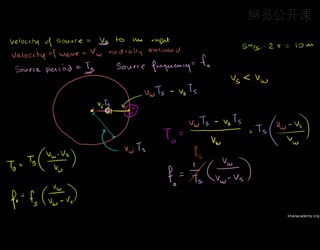 网易公开课
velocity of source = Vs to the right
5m/s · 2s = 10m
velocity of wave = Vw radially outward
Source period = Ts Source frequency = fs
Vs < Vw
VsTs
VwTs - VsTs
VwTs
To = (VwTs - VsTs)/Vw = Ts((Vw - Vs)/Vw)
To = Ts((Vw - Vs)/Vw)
fo = 1/Ts (Vw/(Vw - Vs))
fo = fs(Vw/(Vw - Vs))
khanacademy.org